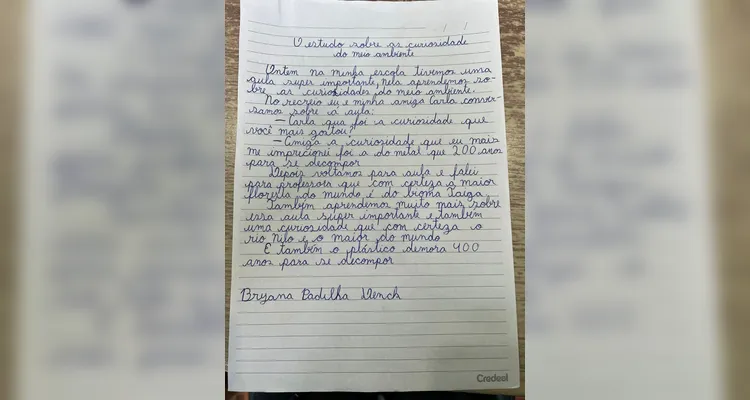 O estudo sobre as curiosidade
do meio ambiente
Ontem na minha escola tivemos uma
aula super importante, nela aprendemos so-
bre as curiosidades do meio ambiente.
No recreio eu e minha amiga Carla conver-
samos sobre a aula:
— Carla qua foi a curiosidade que
você mais gostou?
— Amiga a curiosidade que eu mais
me imprecionei foi a do metal que 200 anos
para se decompor
Depois voltamos para aula e falei
para professora que com certeza a maior
floresta do mundo é do bioma Taiga.
Também aprendemos muito mais sobre
essa aula super importante e também
uma curiosidade que com certeza o
rio Nilo e o maior do mundo
E também o plástico demora 400
anos para se decompor
Bryana Padilha
Credeal